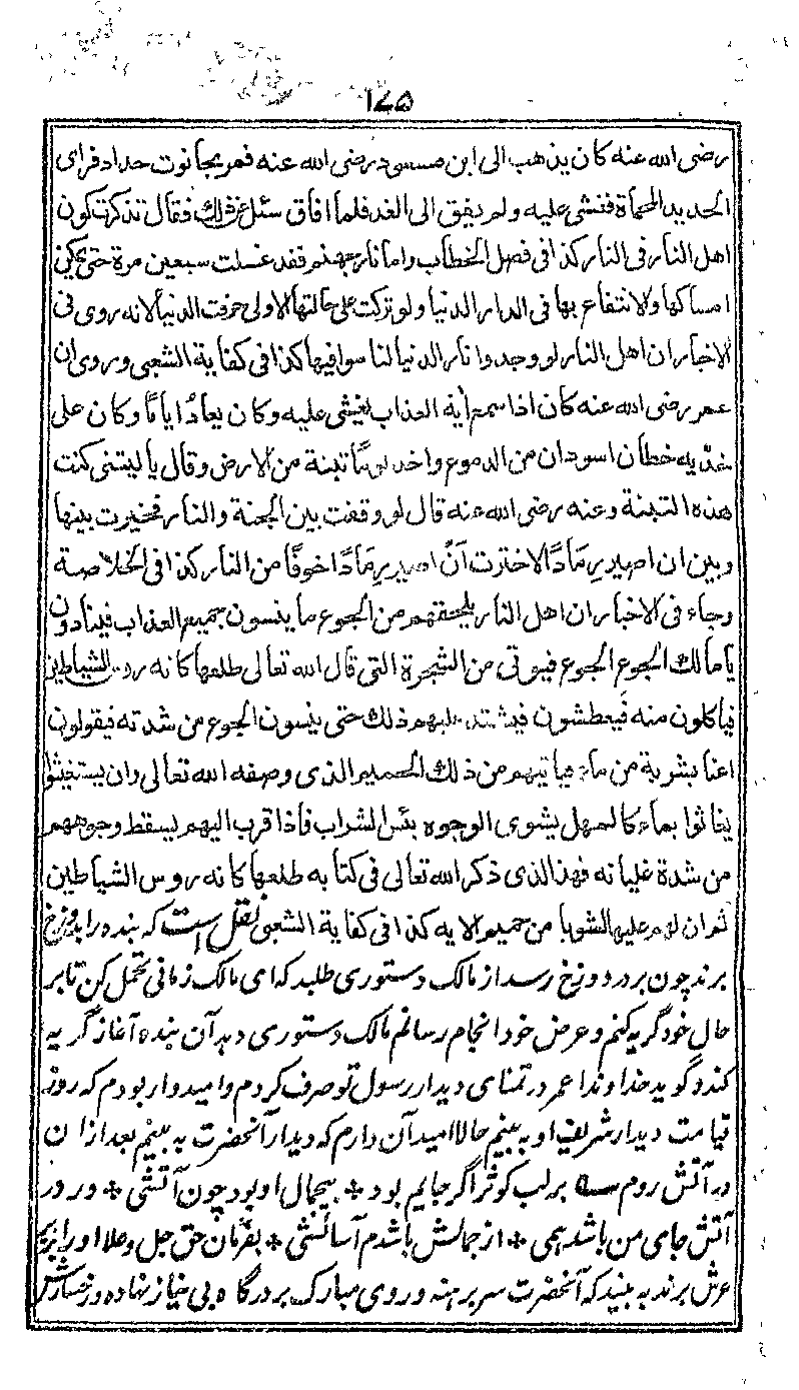 ۱۷۵
رضی الله عنه كان يذهب الى ابن مسعود رضی الله عنه فمر بحانوت حداد فرای
الحديد المحماة فغشی عليه ولم يفق الى الغد فلما افاق سئل عن ذلك فقال تذكرت كون
اهل النار فی النار كذا فی فصل الخطاب واما نار جهنم فقد غسلت سبعين مرة حتى يمكن
امساكها والانتفاع بها فی الدار الدنيا ولو تركت على حالتها الاولى حرقت الدنيا لانه روی فی
الاخبار ان اهل النار لو وجدوا نار الدنيا لناموا فيها كذا فی كفاية الشعبی وروی ان
عمر رضی الله عنه كان اذا سمع آية العذاب يغشی عليه وكان يعاد اياما وكان على
خديه خطان اسودان من الدموع واخذ يوما تبنة من الارض وقال ياليتنی كنت
هذه التبنة وعنه رضی الله عنه قال لو وقفت بين الجنة والنار فخيرت بينها
وبين ان اصير رمادًا لاخترت ان اصير رمادًا خوفًا من النار كذا فی الخلاصة
وجاء فی الاخبار ان اهل النار يلحقهم من الجوع ما ينسون جميع العذاب فينادون
يا مالك الجوع الجوع فيوتی من الشجرة التی قال الله تعالى طلعها كانه رؤس الشياطين
فياكلون منه فيعطشون فيشتد عليهم ذلك حتى ينسون الجوع من شدته فيقولون
اغثنا بشربة من ماء فياتيهم من ذلك الحميم الذی وصفه الله تعالى وان يستغيثوا
يغاثوا بماء كالمهل يشوی الوجوه بئس الشراب فاذا قرب اليهم يسقط وجوههم
من شدة غليانه فهذا الذی ذكر الله تعالى فی كتابه طلعها كانه روس الشياطين
ثم ان لهم عليها لشوبا من حميم الايه كذا فی كفاية الشعبی نقل است که بنده را بدوزخ
برند چون بر در دوزخ رسد از مالک دستوری طلبد که ای مالک زمانی تحمل کن تا بر
حال خود گریه کنم و عرض خود انجام رسانم مالک دستوری دهد آن بنده آغاز گریه
کند و گوید خداوندا عمر در تمنای دیدار رسول تو صرف کردم و امیدوار بودم که روز
قیامت دیدار شریف او به بینم حالا امید آن دارم که دیدار آنحضرت به بینم بعد ازان
در آتش روم ؎ بر لب کوثر اگر جایم بود * بیجمال او بود چون آتشی * ور در
آتش جای من باشد همی * از جمالش باشدم آسائشی * بفرمان حق جل وعلا او را بزیر
عرش برند به بیند که آنحضرت سر برهنه و روی مبارک بر درگاه بی نیاز نهاده و رخسارش